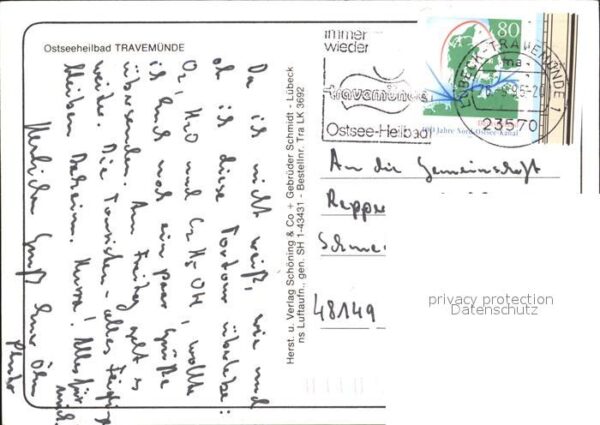 Ostseeheilbad TRAVEMÜNDE
Da ich nicht weiß, wie und
ob ich diese Tortour überlebe:
O₂, H₂O und C₂H₅OH, wollte
ich Euch noch ein paar Grüße
übersenden. Am Freitag geht es
weiter. Die Touristen - alles
bleiben Daheim. Hurra! Alles für
Herzlichen Gruß Euer
Herst. u. Verlag Schöning & Co + Gebrüder Schmidt - Lübeck
ns Luftaufn., gen. SH 1-43431 - Bestellnr. Tra LK 3692
immer
wieder
travemünde
Ostsee-Heilbad
80
100 Jahre Nord-Ostsee-Kanal
LÜBECK-TRAVEMÜNDE 1
ma
23570
An die Gemeinschaft
48149
privacy protection
Datenschutz